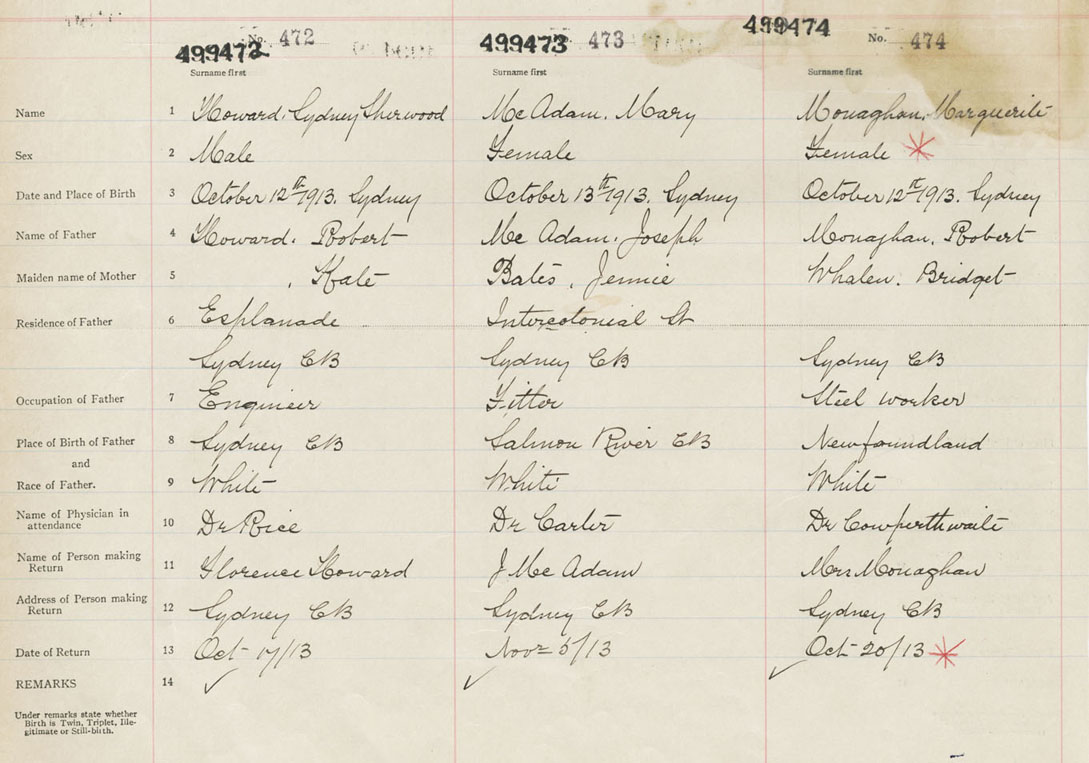 499472 No. 472 499473 No. 473 499474 No. 474
Surname first Surname first Surname first
Name 1 Howard, Sydney Sherwood Mc Adam, Mary Monaghan, Marguerite
Sex 2 Male Female Female
Date and Place of Birth 3 October 12th 1913. Sydney October 13th 1913. Sydney October 12th 1913. Sydney
Name of Father 4 Howard. Robert Mc Adam. Joseph Monaghan. Robert
Maiden name of Mother 5 , Kate Bates, Jennie Whalen. Bridget
Residence of Father 6 Esplanade Intercolonial St
Sydney CB Sydney CB Sydney CB
Occupation of Father 7 Engineer Fitter Steel worker
Place of Birth of Father 8 Sydney CB Salmon River CB Newfoundland
and
Race of Father. 9 White White White
Name of Physician in
attendance 10 Dr Rice Dr Carter Dr Cowperthwaite
Name of Person making
Return 11 Florence Howard J Mc Adam Mrs Monaghan
Address of Person making
Return 12 Sydney CB Sydney CB Sydney CB
Date of Return 13 Oct 17/13 Nov 5/13 Oct 20/13
REMARKS 14
Under remarks state whether
Birth is Twin, Triplet, Ille-
gitimate or Still-birth.